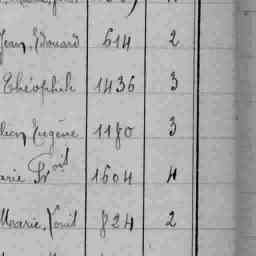 Jean, Édouard 614 2
Théophile 1436 3
Eugène 1180 3
1604 4
Marie, Louis 824 2